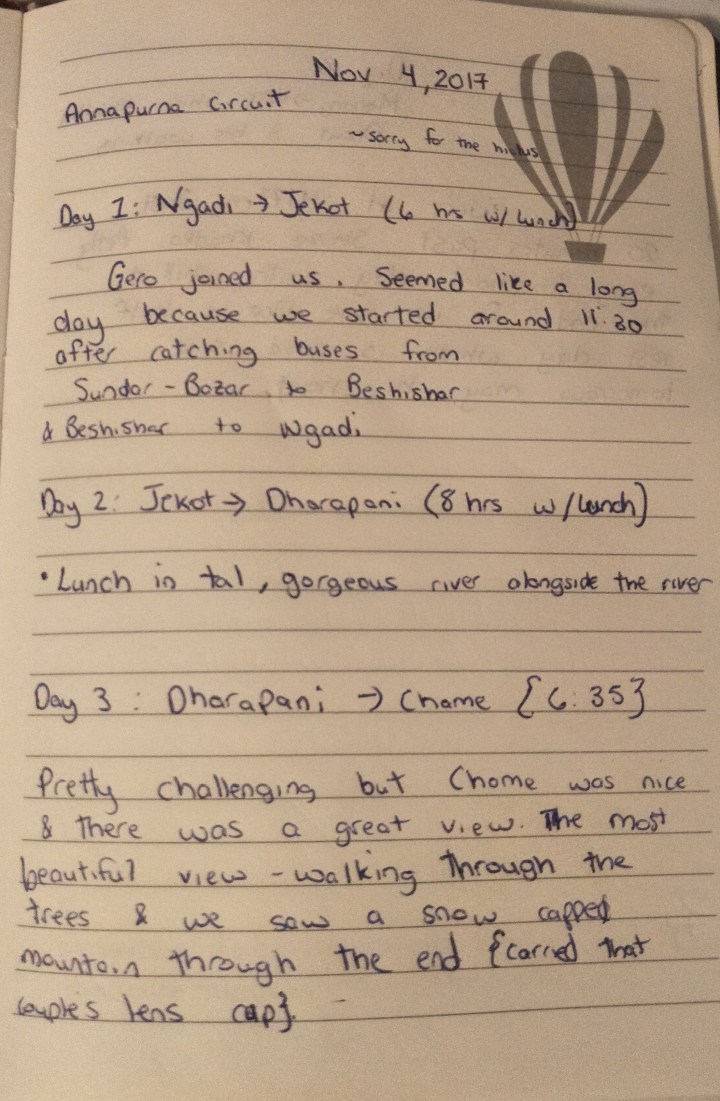 Nov 4, 2017
Annapurna Circuit
~ sorry for the hiatus
Day 1: Ngadi → Jekot (6 hrs w/ lunch)
Gero joined us. Seemed like a long
day because we started around 11:30
after catching buses from
Sundar-Bazar to Beshishar
& Beshishar to Ngadi
Day 2: Jekot → Dharapani (8 hrs w/lunch)
• Lunch in tal, gorgeous river alongside the river
Day 3: Dharapani → Chame {6:35}
Pretty challenging but Chame was nice
& there was a great view. The most
beautiful view - walking through the
trees & we saw a snow capped
mountain through the end {carried that
couples lens cap}.